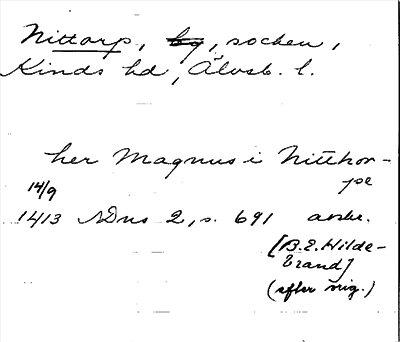 Nittorp, by, socken,
Kinds hd, Älvsb. l.
her Magnus i Nitthor-
pe
14/9
1413 SDns 2, s. 691 avskr.
[B.E. Hilde-
brand]
(efter orig.)